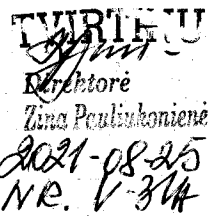 TVIRTINU
Direktorė
Zina Pauliukonienė
2021-08-25
NR. V-31A